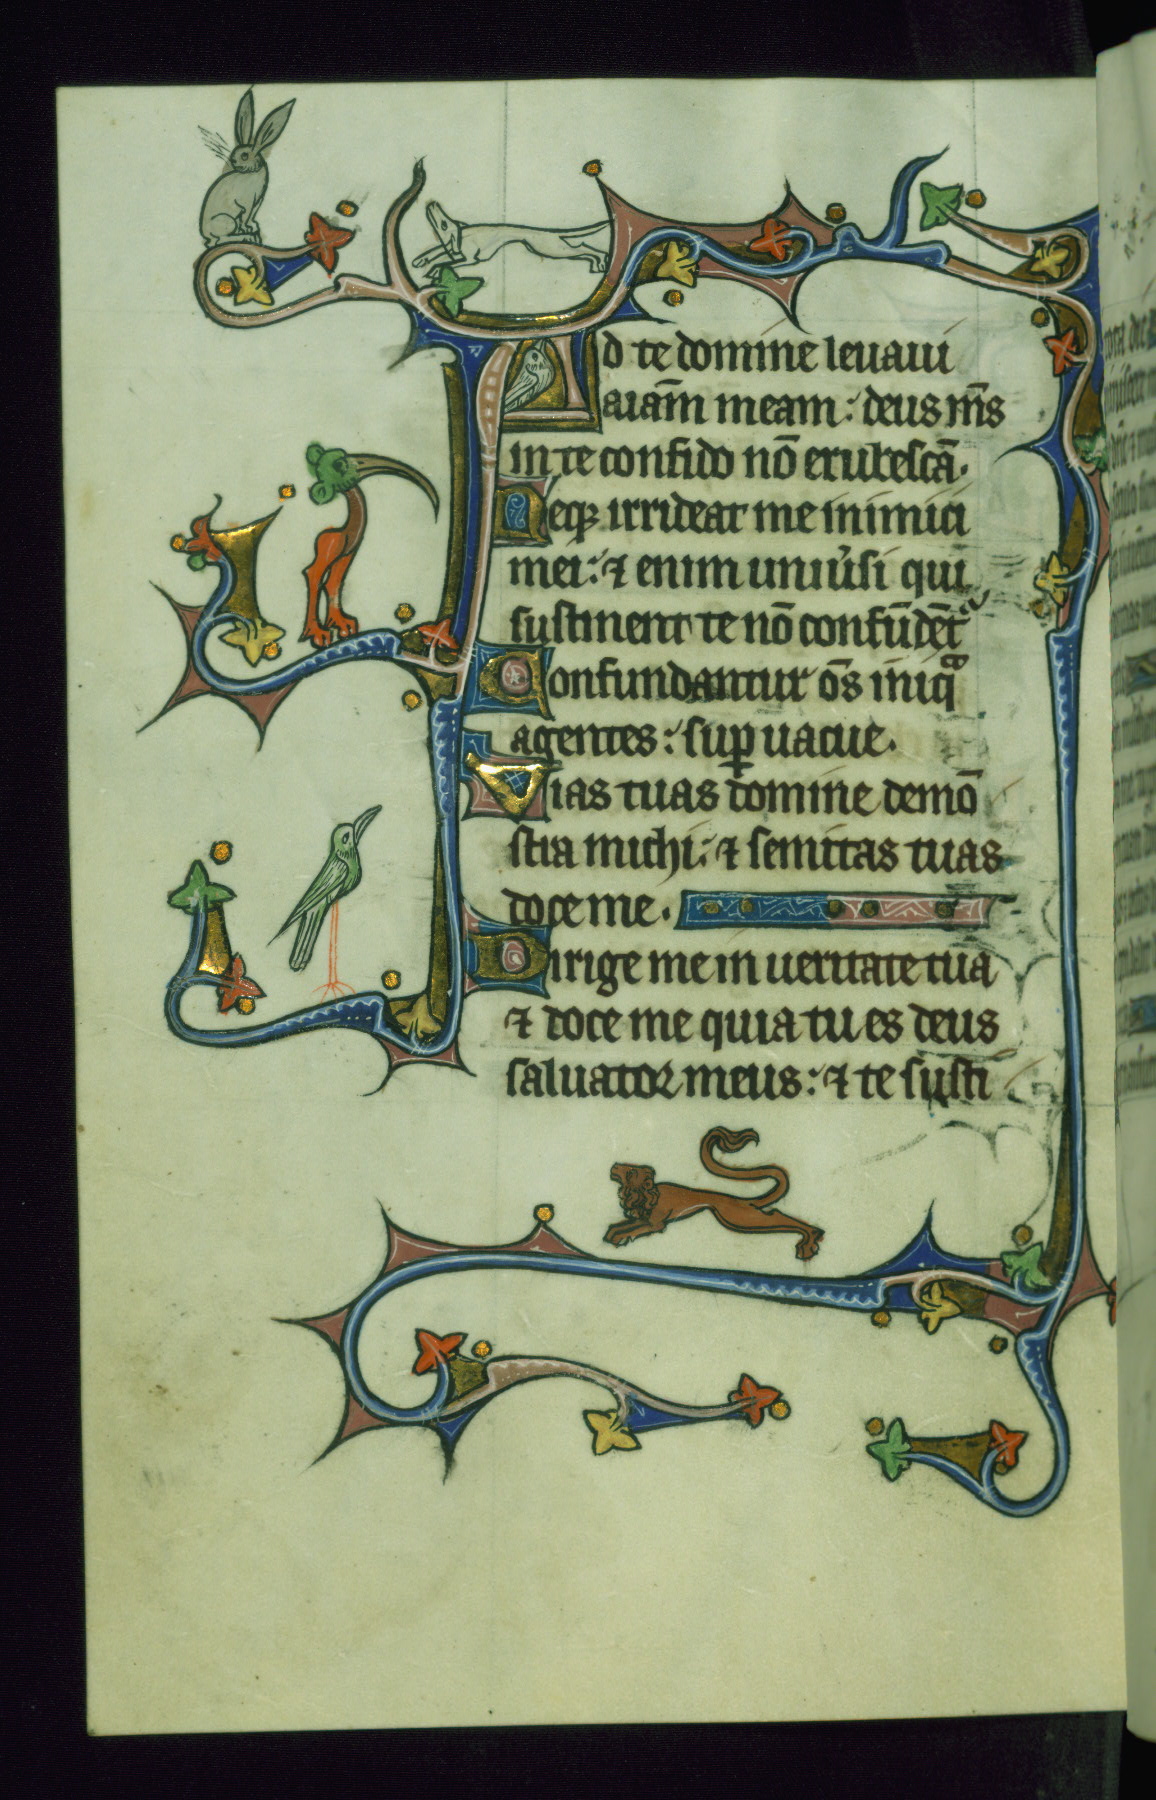 Ad te domine leuaui
aıām meam: deus m̄s
in te confido nō erubescā.
Neqꝫ irrideat me inimici
mei: ⁊ enim uniu͛si qui
sustinent te nō confūdēt᷑
Confundantur ōs iniqᷓ
agentes: suꝑuacue.
Vias tuas domine demō
stra michi: ⁊ semitas tuas
doce me.
Dirige me in ueritate tua
⁊ doce me quia tu es deus
saluator meus: ⁊ te susti